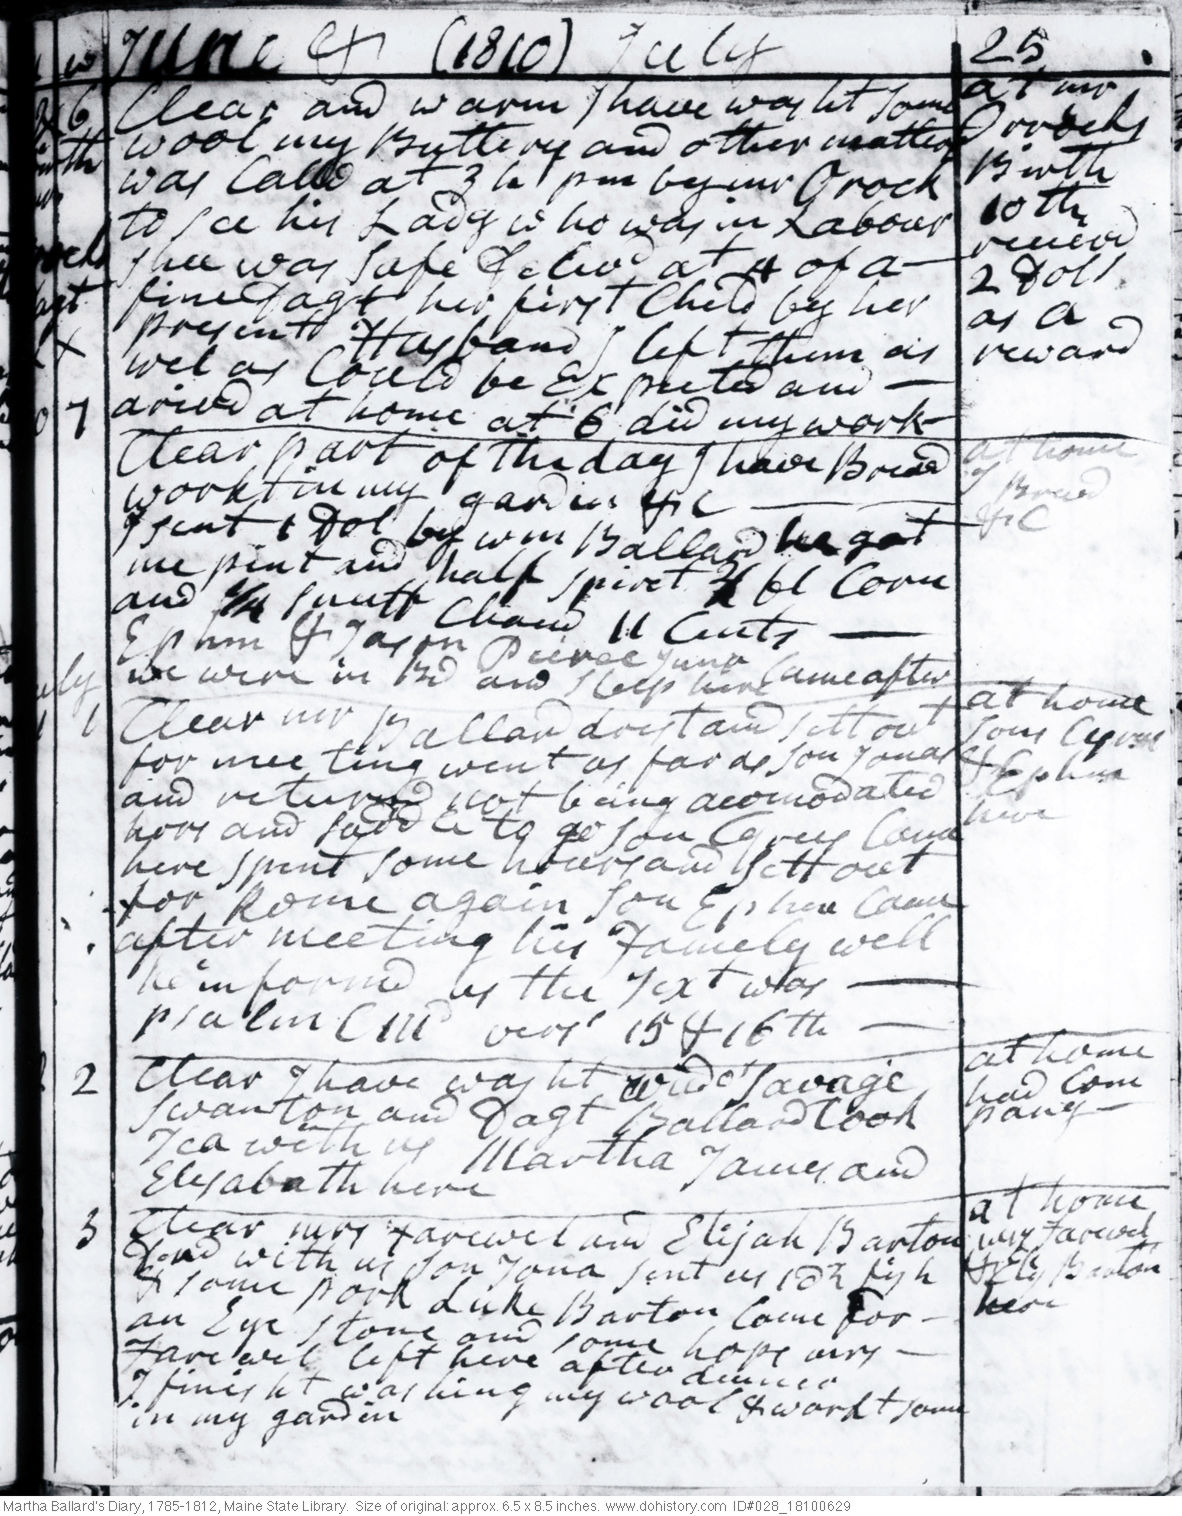 w June & (1810) July 25
x 6 Clear and warm I have washt some
wool my Buttery and other matters
was Calld at 3 h pm by mr Orock
to see his Lady who was in Labour
shee was safe Delivd at 4 of a —
fine Dagt her first Child by her
present Husband I left them as
wel as Could be Expected and —
arivd at home at 6 did my work
at mr
Orocks
Birth
10th
receivd
2 Doll
as a
reward
7 Clear part of the day I have Brewd
workt in my garden &C —
I sent 1 Dol by wm Ballard he got
me pint and half spiret ¼ bl Corn
and ¼ snuff Chand 11 Cents —
Ephm & Jason Pierce Junr Came after
we were in Bd and sleep here
at home
I Brewd
&C
July
1 1 Clear mr Ballard drest and sett out
for meeting went as far as son Jonas
and returnd not being acomodated
hors and saddle to go son Cyrus Came
here spent some hours and sett out
for Rome again son Ephm Came
after meeting his Famely well
he informd us the Text was —
psalm CIII vers 15 & 16th —
at home
sons Cyrus
& Ephm
here
2 Clear I have washt widdt Savage
Swanton and Dagt Ballard Took
Tea with us Martha James and
Elisabath here
at home
had Com
pany —
3 Clear mrs Farewel and Elijah Barton
Dind with us son Jona sent us 12 fish
& some pork Luke Barton Came for —
an Eye stone and some hops mrs —
Farewel left here after dinner
I finisht washing my wool & workt some
in my garden
at home
mrs Farewel
& Ely Barton
here
Martha Ballard's Diary, 1785-1812, Maine State Library. Size of original: approx. 6.5 x 8.5 inches. www.dohistory.com ID#028_18100629